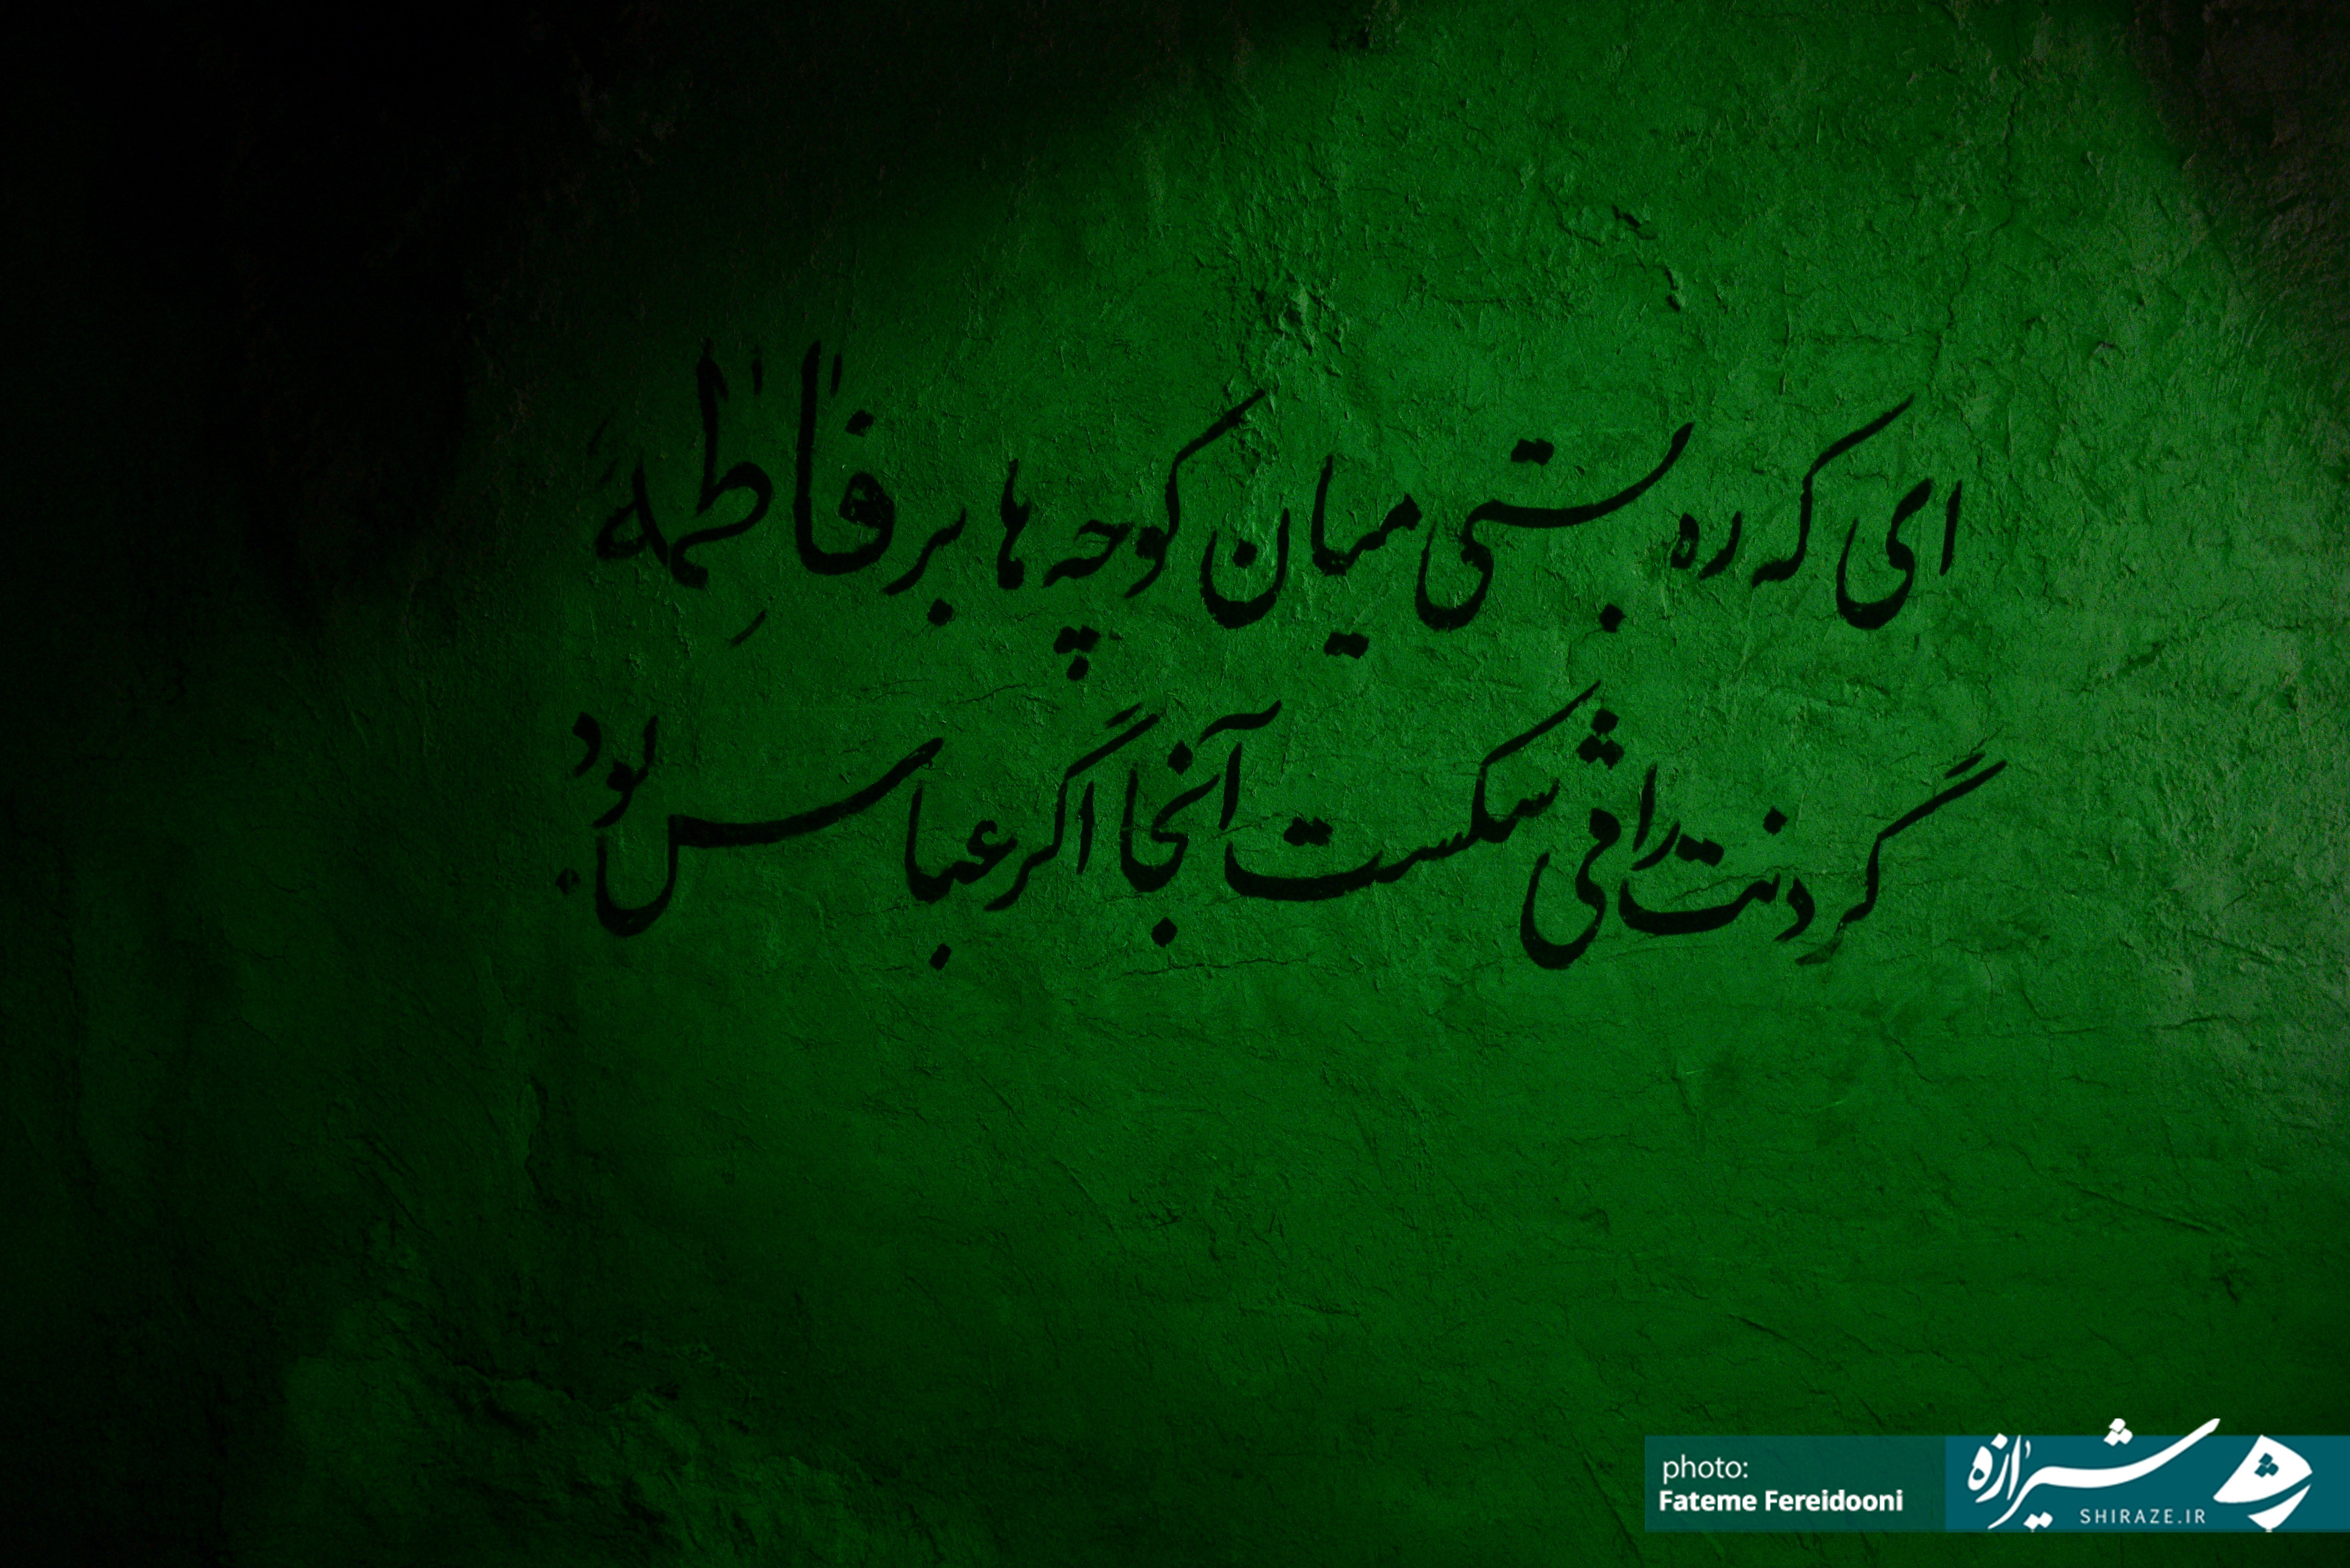 ای که ره بستی میان کوچه ها بر فاطمه
گردنت را می شکست آنجا اگر عباس بود
photo:
Fateme Fereidooni
شیرازه
SHIRAZE.IR